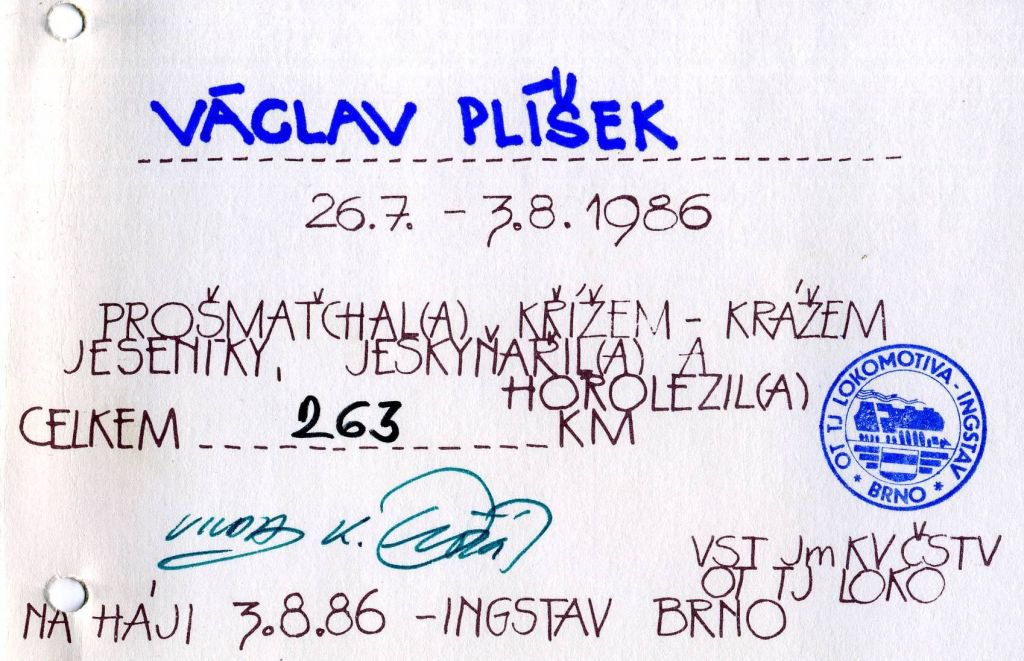 VÁCLAV PLÍŠEK
26.7. - 3.8. 1986
PROŠMAŤCHAL(A) KŘÍŽEM - KRÁŽEM
JESENÍKY, JESKYŇAŘIL(A) A
HOROLEZIL(A)
CELKEM 263 KM
OT TJ LOKOMOTIVA - INGSTAV
* BRNO *
K.
VST JmKV ČSTV
OT TJ LOKO
NA HÁJI 3.8.86 - INGSTAV BRNO